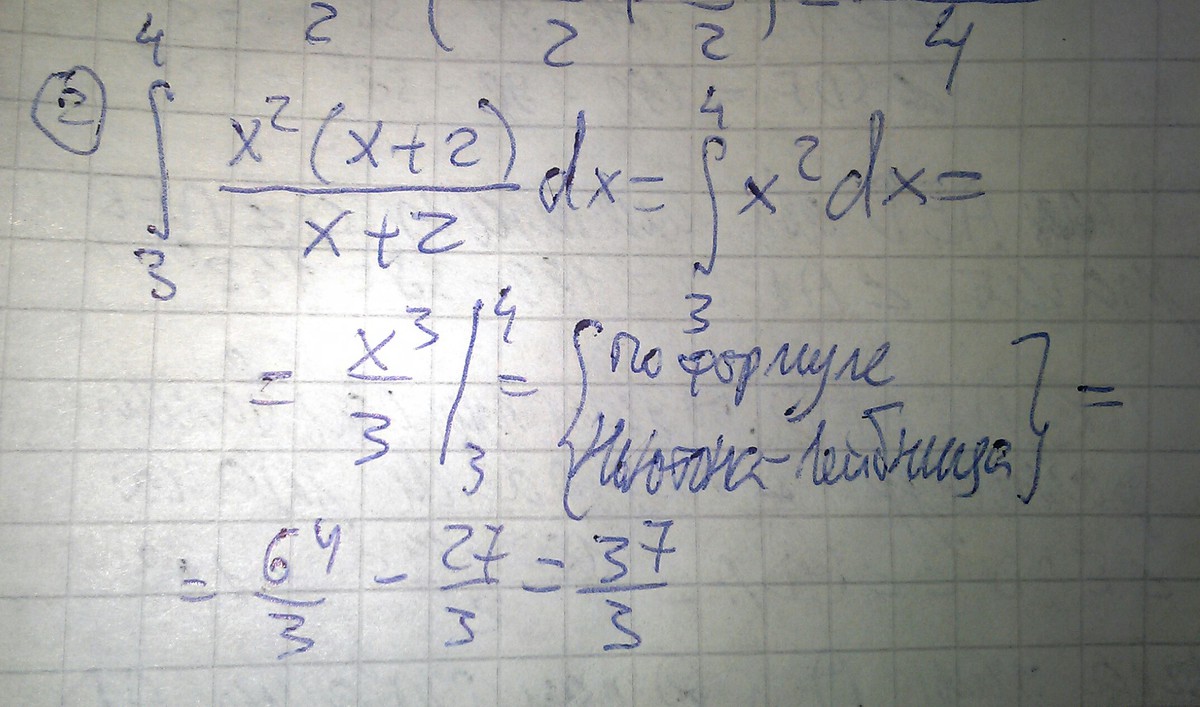 2 ( 2 2 ) = 4
② ∫₃⁴ x²(x+2)/(x+2) dx = ∫₃⁴ x² dx =
= x³/3 |₃⁴ = { по формуле Ньютона-Лейбница } =
= 64/3 - 27/3 = 37/3